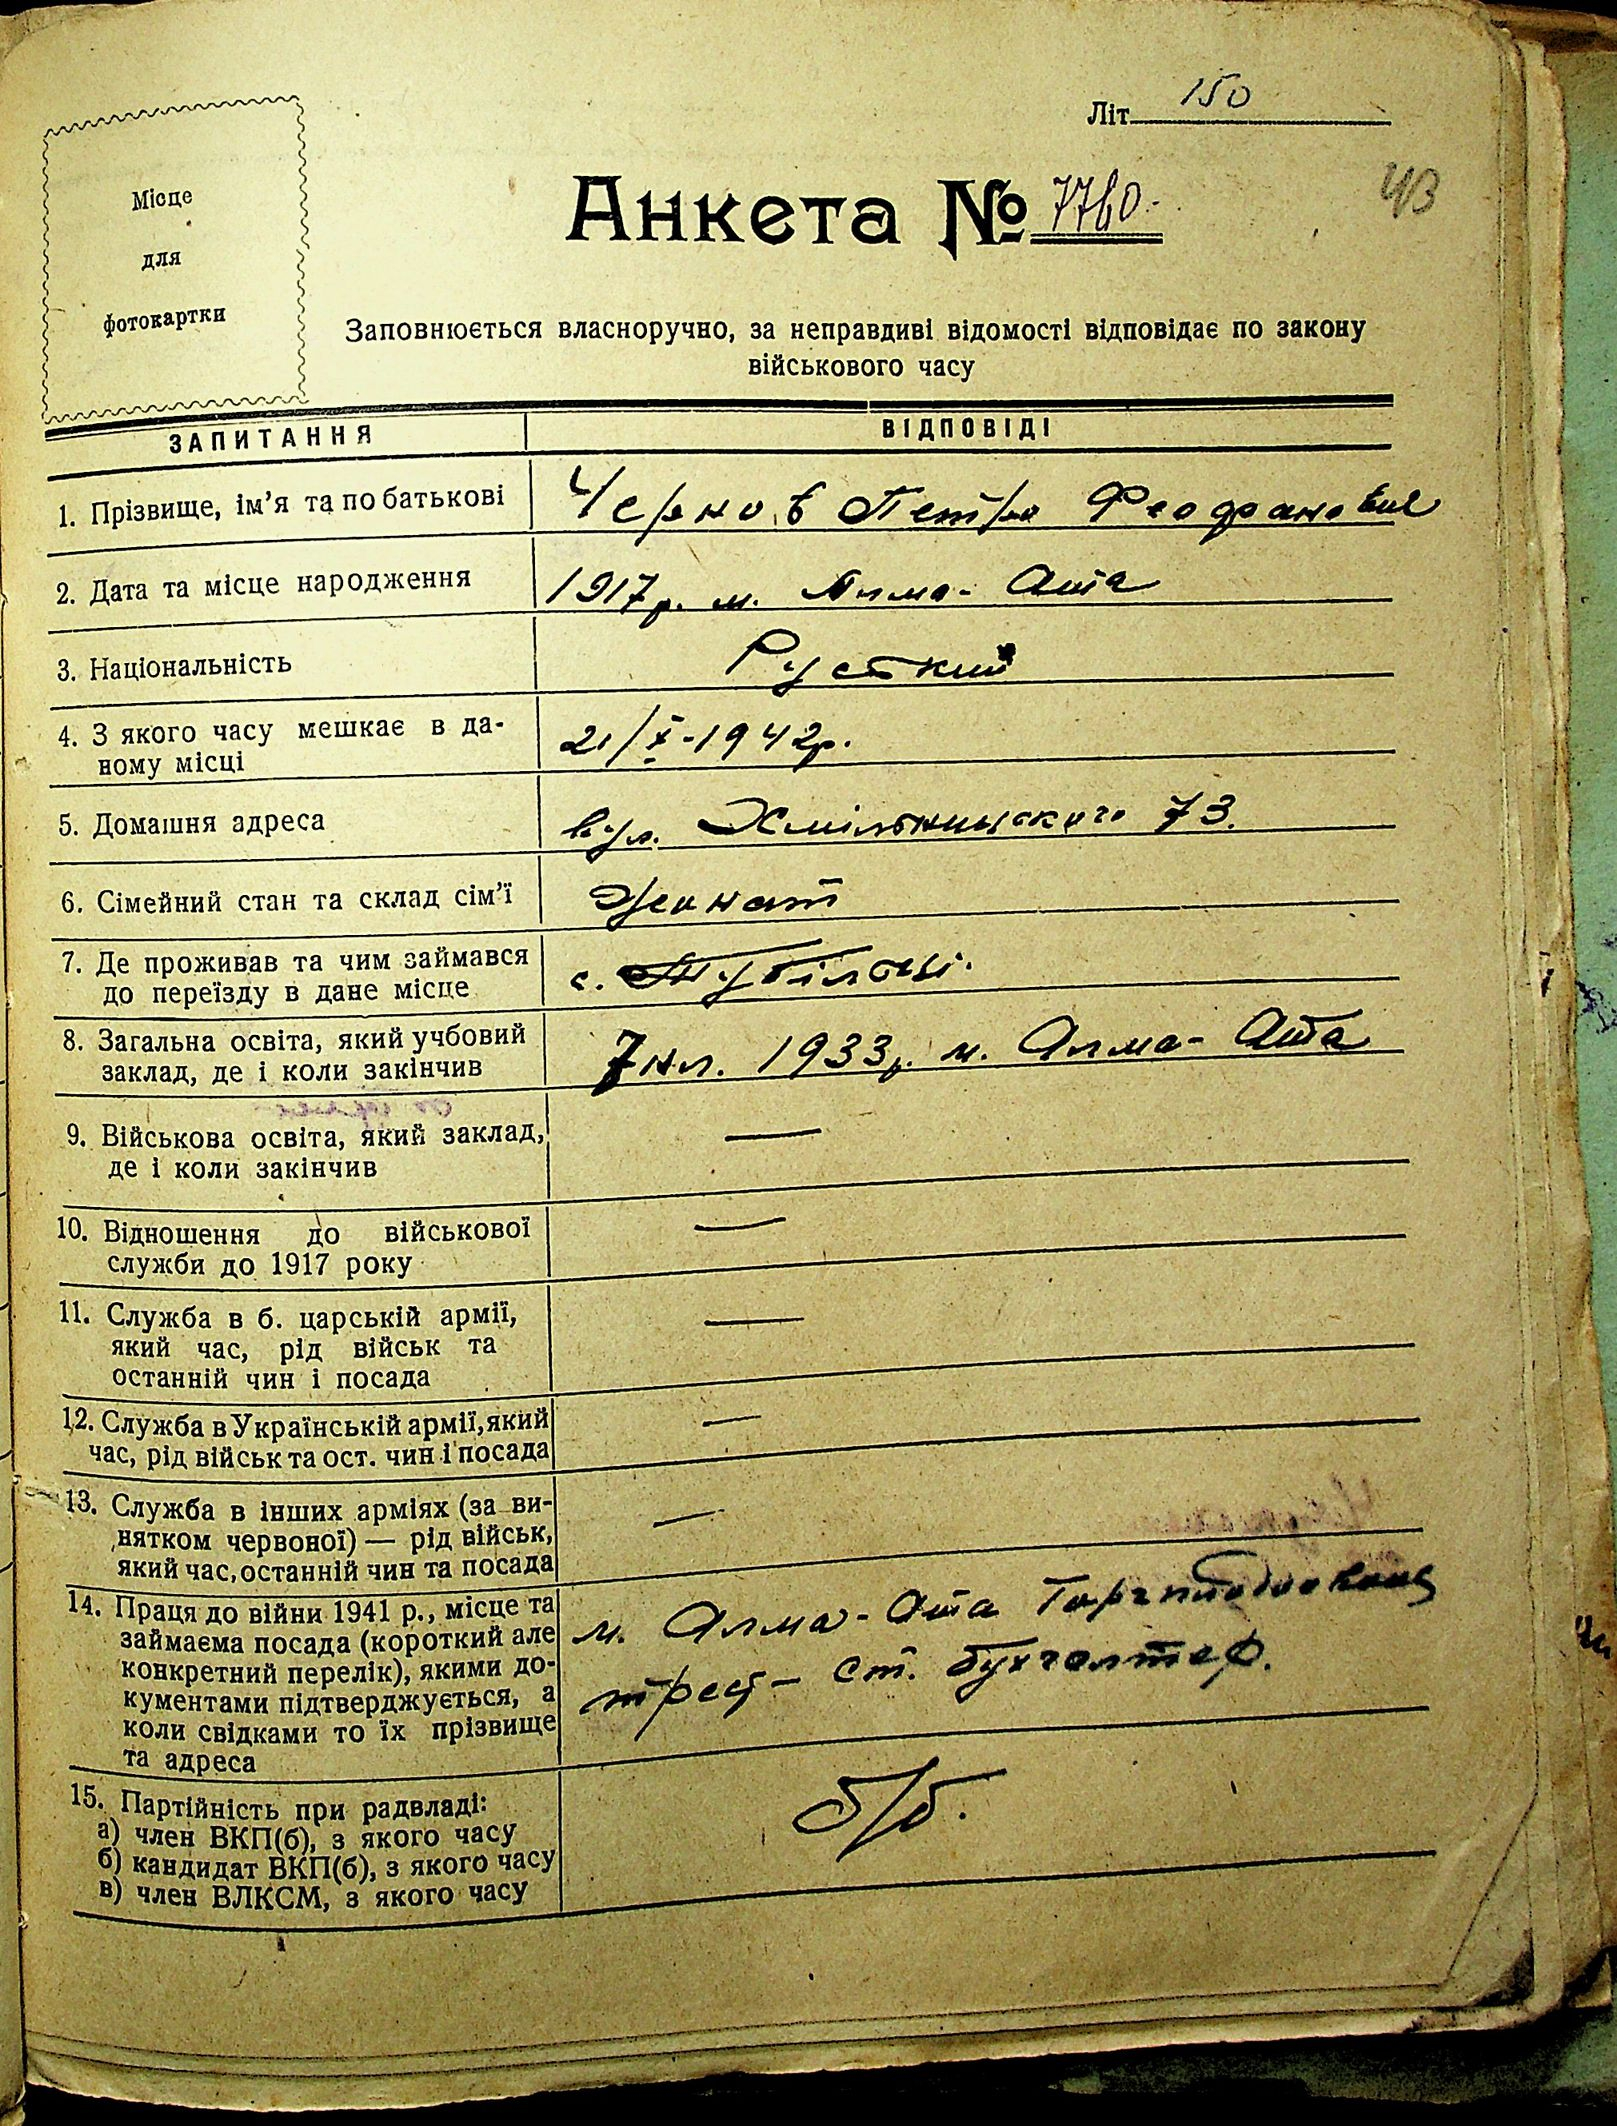 Літ 150
Анкета № 7760.-
43
Місце
для
фотокартки
Заповнюється власноручно, за неправдиві відомості відповідає по закону
військового часу
ЗАПИТАННЯ ВІДПОВІДІ
1. Прізвище, ім'я та по батькові Чернов Петро Феофанович
2. Дата та місце народження 1917р. м. Алма-Ата
3. Національність Русткий
4. З якого часу мешкає в да-
ному місці 21/X-1942р.
5. Домашня адреса вул. Хмільницького 73.
6. Сімейний стан та склад сім'ї Жонат
7. Де проживав та чим займався
до переїзду в дане місце с.
8. Загальна освіта, який учбовий
заклад, де і коли закінчив 7 кл. 1933р. м. Алма-Ата
9. Військова освіта, який заклад,
де і коли закінчив —
10. Відношення до військової
служби до 1917 року —
11. Служба в б. царській армії,
який час, рід військ та
останній чин і посада —
12. Служба в Українській армії, який
час, рід військ та ост. чин і посада —
13. Служба в інших арміях (за ви-
нятком червоної) — рід військ,
який час, останній чин та посада —
14. Праця до війни 1941 р., місце та
займаєма посада (короткий але
конкретний перелік), якими до-
кументами підтверджується, а
коли свідками то їх прізвище
та адреса
м. Алма-Ата
трест – ст. бухгалтер.
15. Партійність при радвладі:
а) член ВКП(б), з якого часу
б) кандидат ВКП(б), з якого часу
в) член ВЛКСМ, з якого часу
б/б.